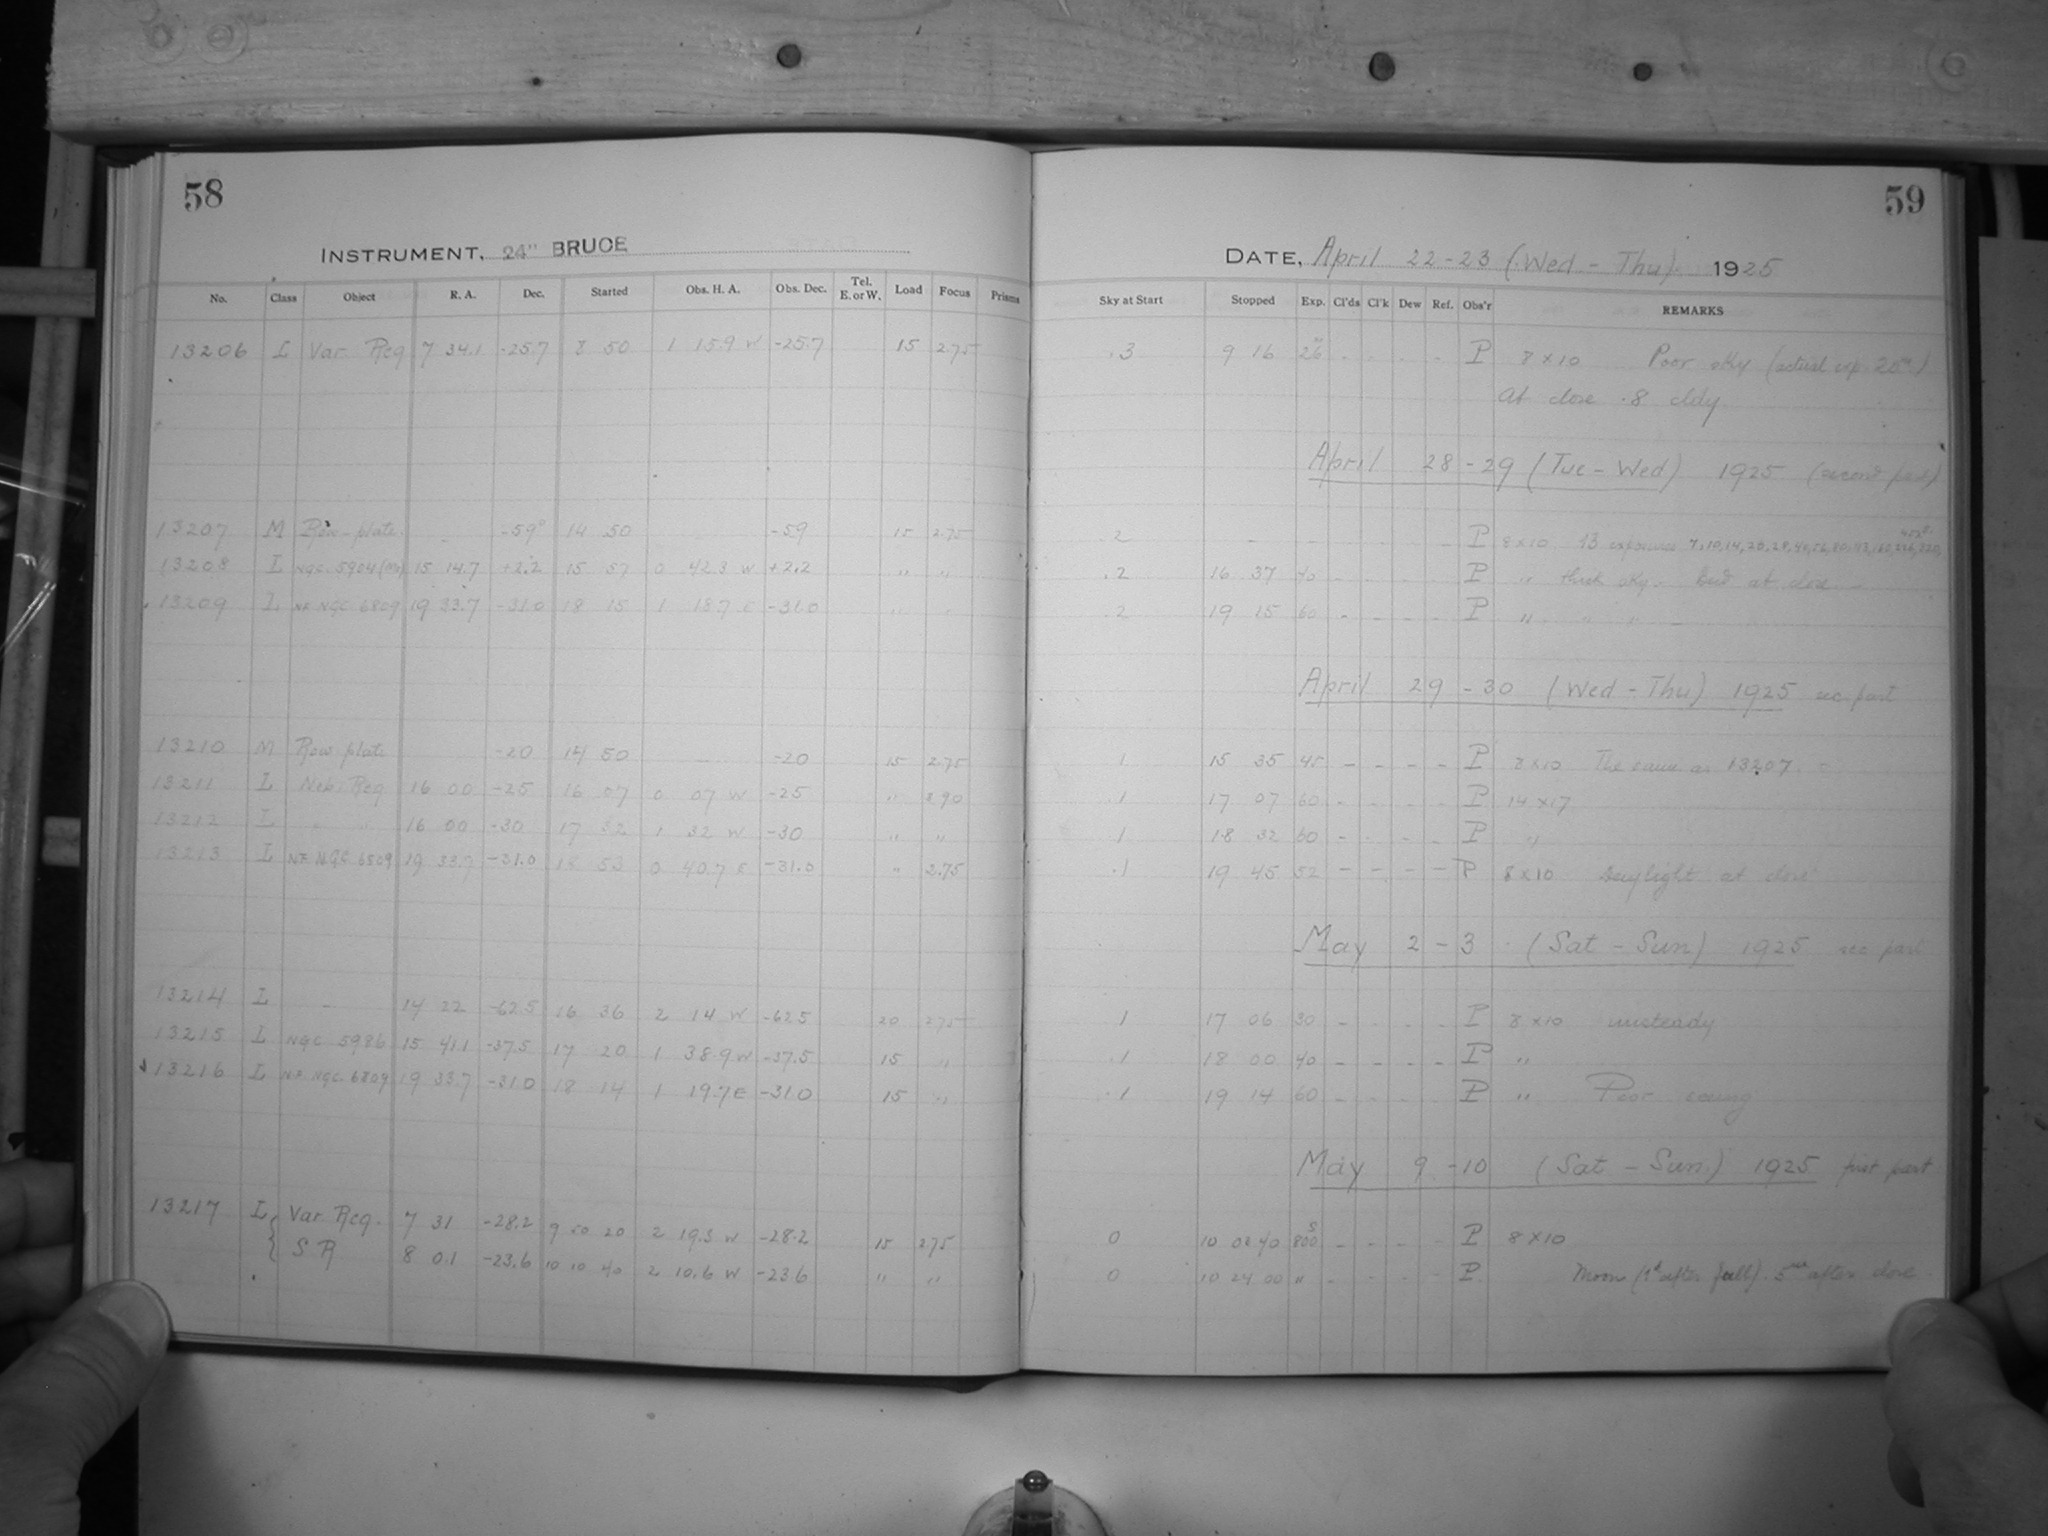 58
INSTRUMENT, 24" BRUCE
No. Class Object R. A. Dec. Started Obs. H. A. Obs. Dec. Tel. E. or W. Load Focus Prisms
13206 L Var. Reg 7 34.1 -25.7 8 50 1 15.9 W -25.7 15 2.75
13207 M Row-plate - -59° 14 50 - -59 15 2.75
13208 L NGC. 5904 15 14.7 +2.2 15 57 0 42.3 W +2.2 " "
13209 L NF NGC 6809 19 33.7 -31.0 18 15 1 18.7 E -31.0 " "
13210 M Row plate -20 14 50 - -20 15 2.75
13211 L Neb. Reg 16 00 -25 16 07 0 07 W -25 " 2.90
13212 L " " 16 00 -30 17 32 1 32 W -30 " "
13213 L NF NGC 6809 19 33.7 -31.0 18 53 0 40.7 E -31.0 " 2.75
13214 L - 14 22 -62.5 16 36 2 14 W -62.5 20 2.75
13215 L NGC 5986 15 41.1 -37.5 17 20 1 38.9 W -37.5 15 "
13216 L NF NGC. 6809 19 33.7 -31.0 18 14 1 19.7 E -31.0 15 "
13217 L Var Reg. 7 31 -28.2 9 50 20 2 19.3 W -28.2 15 2.75
S R 8 0.1 -23.6 10 10 40 2 10.6 W -23.6 " "
59
DATE, April 22-23 (Wed - Thu). 1925
Sky at Start Stopped Exp. Cl'ds Cl'k Dew Ref. Obs'r REMARKS
.3 9 16 26 - - - - P 8 x 10 Poor sky (actual exp. 25m)
At close .8 cldy
April 28-29 (Tue - Wed) 1925 (second part)
.2 - - - - - - P 8 x 10 13 exposures
.2 16 37 40 - - - - P " thick sky. at close -
.2 19 15 60 - - - - P " " " -
April 29-30 (Wed - Thu) 1925 sec part
.1 15 35 45 - - - - P 8 x 10 The same as 13207.
.1 17 07 60 - - - - P 14 x 17
.1 18 32 60 - - - - P "
.1 19 45 52 - - - - P 8 x 10 Daylight at close
May 2 - 3 (Sat - Sun) 1925 sec part
.1 17 06 30 - - - - P 8 x 10 unsteady
.1 18 00 40 - - - - P "
.1 19 14 60 - - - - P " Poor seeing
May 9 - 10 (Sat - Sun.) 1925 first part
0 10 03 40 800s - - - - P 8 x 10
0 10 24 00 " - - - - P. Moon (1d after full). 5m after close.